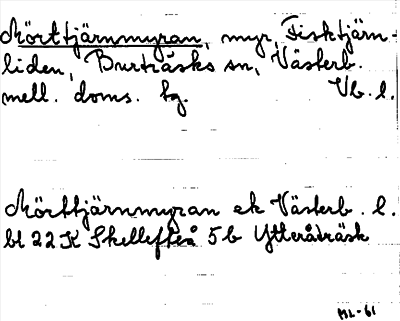 Mörttjärnmyran, myr, Fisktjärn-
liden, Burträsks sn, Västerb.
mell. doms. tg. Vb. l.
Mörttjärnmyran ek Västerb. l.
bl 22 K Skellefteå 5 b Ytteråträsk
ML-61